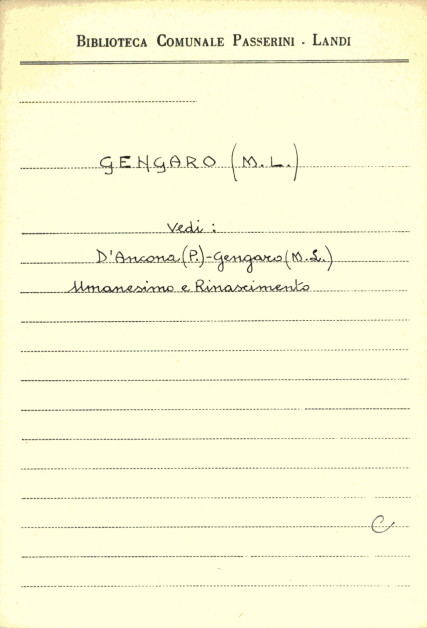 BIBLIOTECA COMUNALE PASSERINI - LANDI
GENGARO (M.L.)
Vedi:
D'Ancona (P.)-Gengaro (M.L.)
Umanesimo e Rinascimento
C